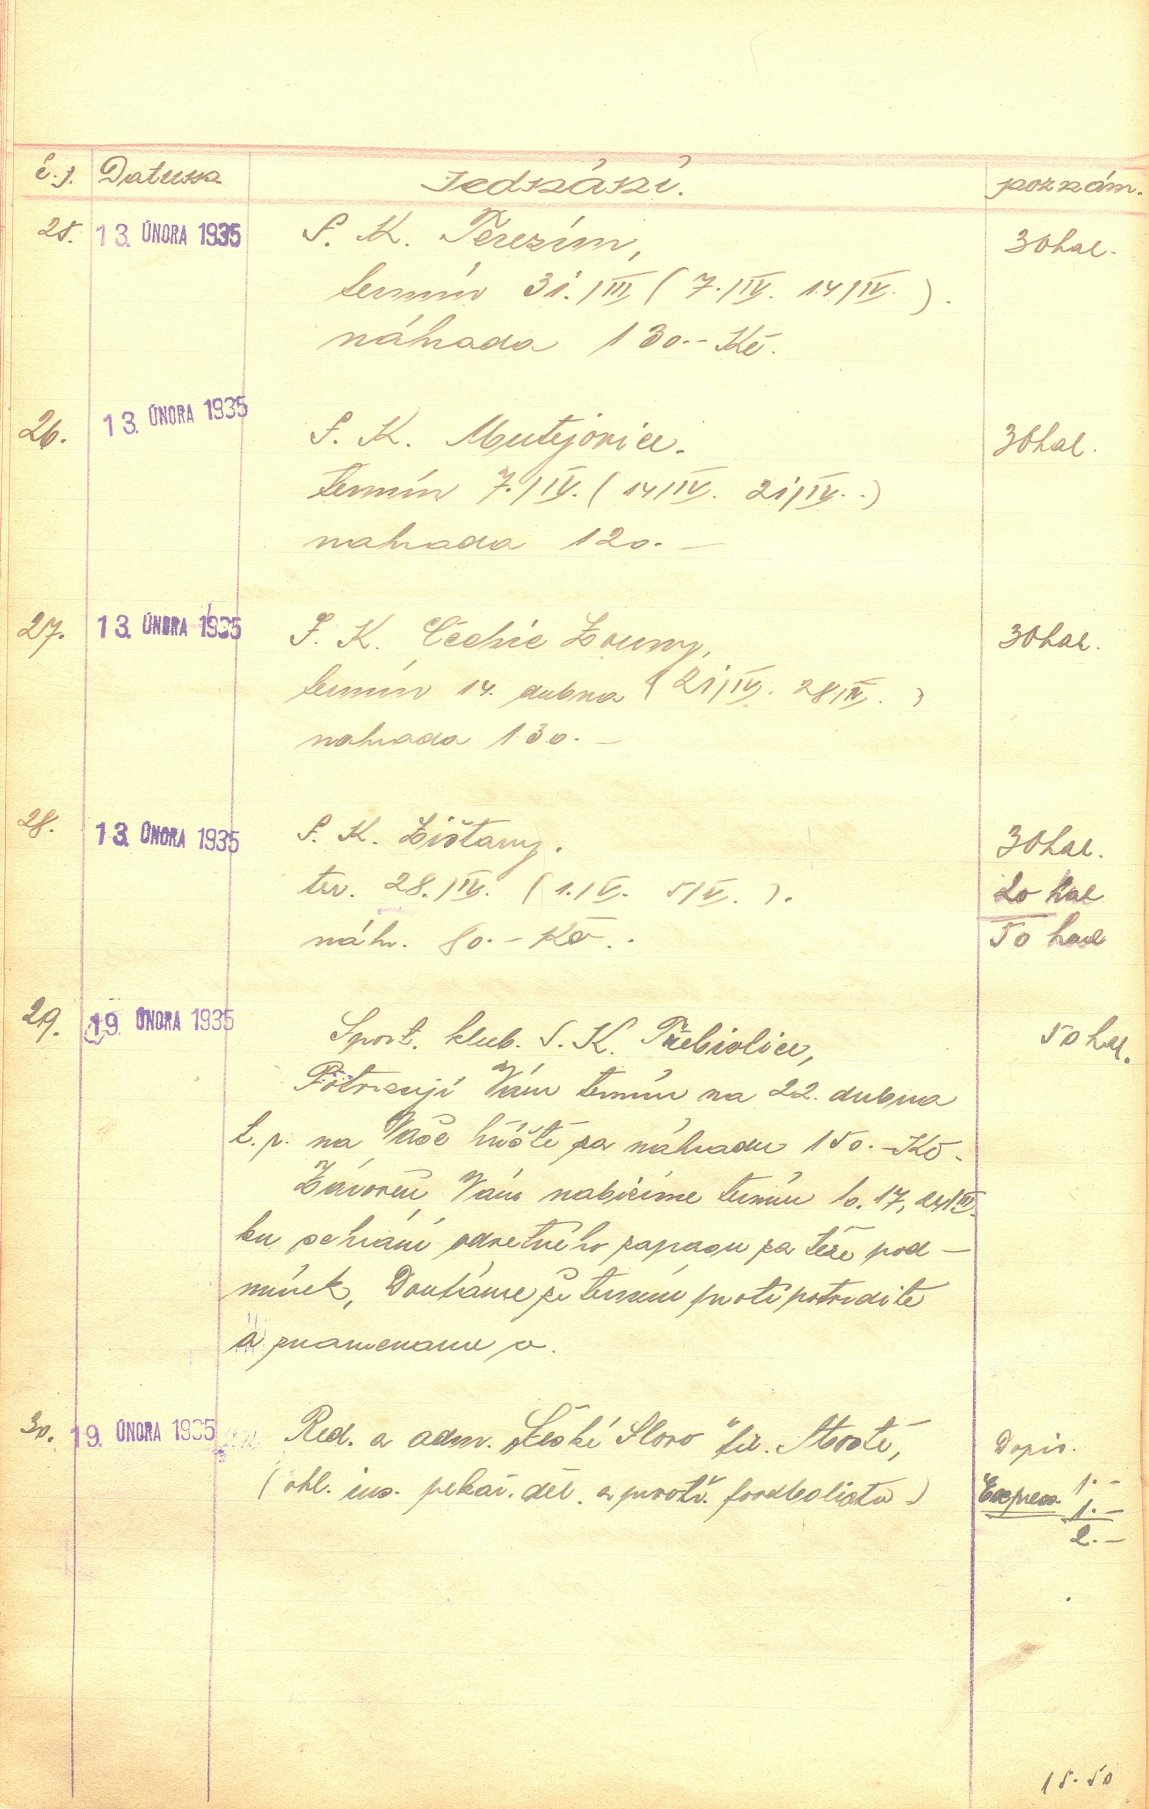 č.j. Datum Jednání. poznám.
25. 13. ÚNORA 1935 S. K. Terezín, 30 hal.
termín 31./III. ( 7./IV. 14/IV. ).
náhrada 130.- Kč.
26. 13. ÚNORA 1935 S. K. Mutějovice. 30 hal.
termín 7./IV. ( 14/IV. 21/IV. )
nahrada 120.-
27. 13. ÚNORA 1935 S. K. Čechie Louny, 30 hal.
termín 14. dubna ( 21/IV. 28/IV. )
nahrada 130.-
28. 13. ÚNORA 1935 S. K. Lištany. 30 hal.
ter. 28./IV. ( 1./V. 5/V. ). 20 hal
náh. 80.- Kč. 50 hal
29. 19. ÚNORA 1935 Sport. klub. S. K. Třebivlice, 50 hal.
Vám termín na 22. dubna
t. r. na Vaše hřiště za náhradu 150.- Kč.
Závoreň Vám nabízíme termín 10. 17, 24/III.
ku sehrání odvetného zápasu za téže pod-
mínek, Doufáme že termín potvrdite
a znamenáme se.
30. 19. ÚNORA 1935 Red. a adm. "České Slovo" fil. Mostě, Dopis. 1.-
( ohl. ins. pekař. děl. a ) Express. 1.-
2.-
15.50